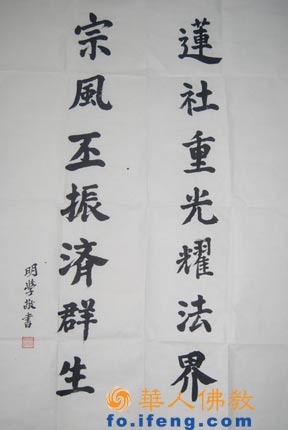 蓮社重光耀法界
宗風丕振済群生
明學敬書
華人佛教
fo.ifeng.com